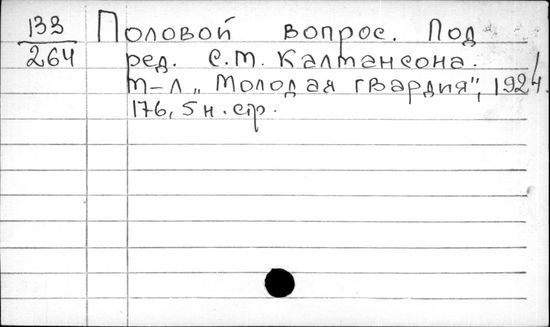 133
264
Половой вопрос. Под
ред. С.М. Калмансона.
М-Л „Молодая гвардия", 1924.
176, 5 н. стр.